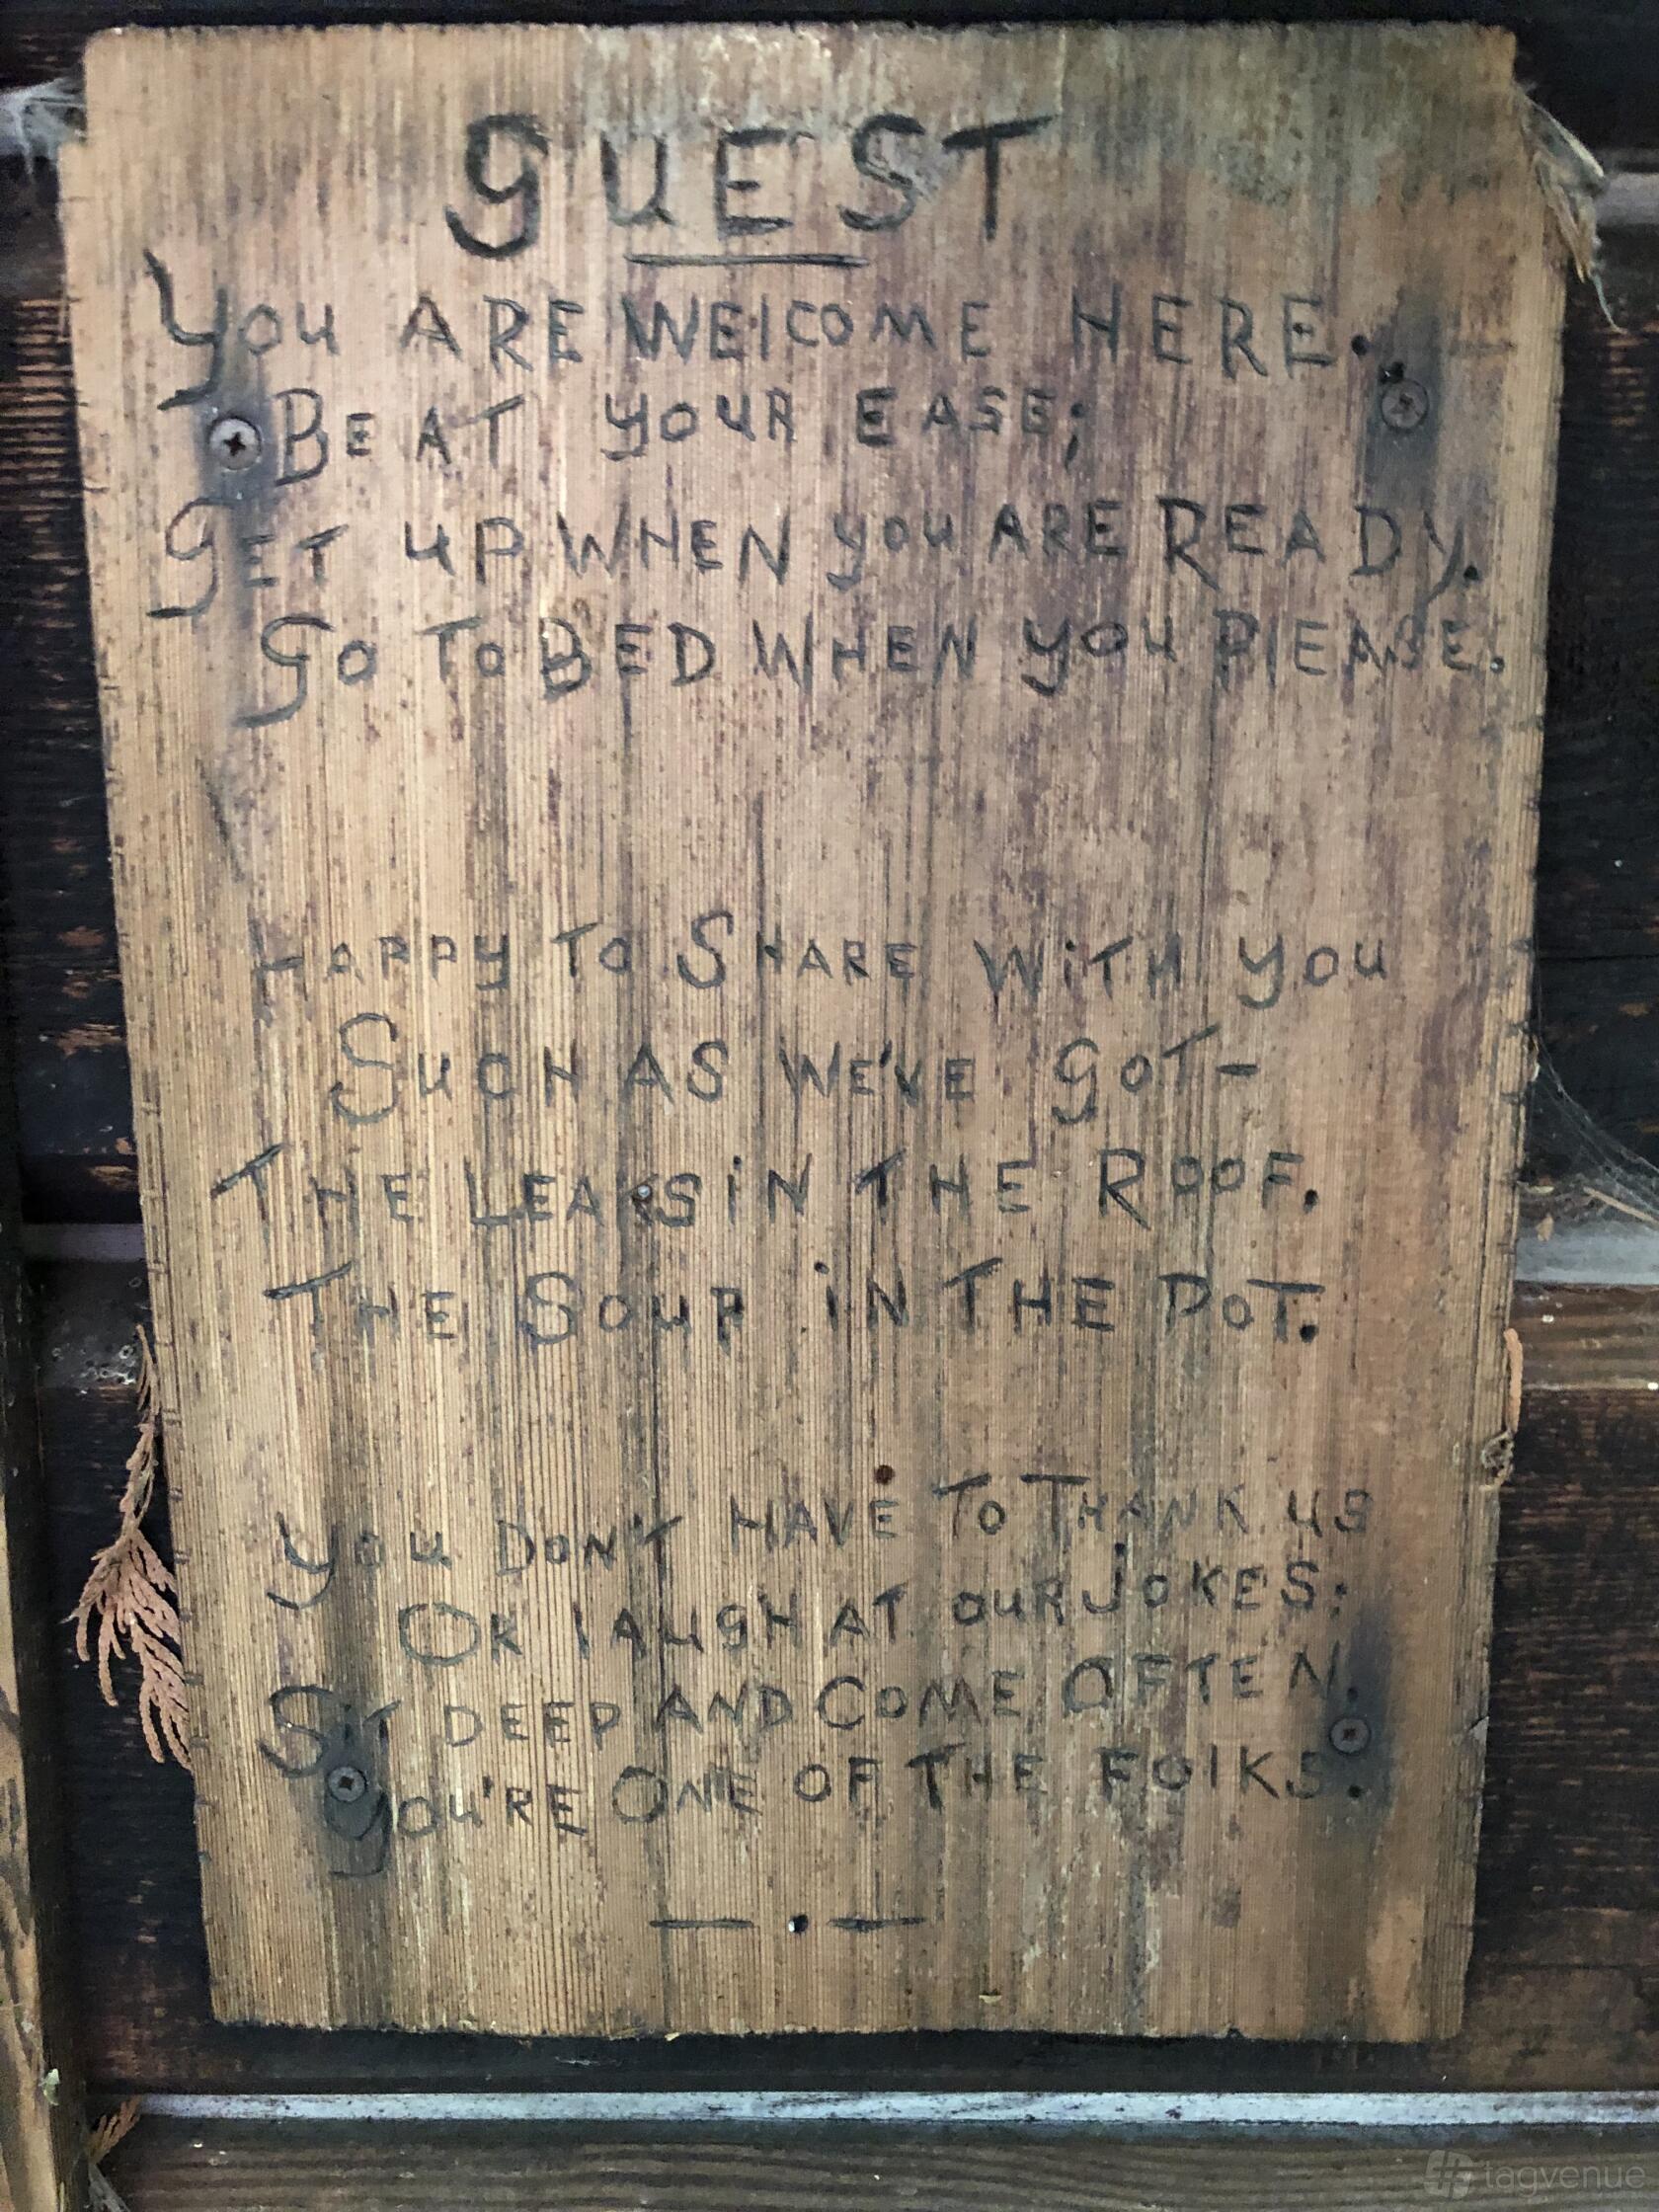 GUEST
YOU ARE WElCOME HERE.
BE AT YOUR EASE;
GET UP WHEN YOU ARE READY.
GO TO BED WHEN YOU PlEASE.
HAPPY TO SHARE WiTH YOU
SUCH AS WE'VE GOT-
THE LEAKS iN THE ROOF.
THE SOUP iN THE POT.
YOU DON'T HAVE TO THANK US
OR lAUGH AT OUR JOKES:
SiT DEEP AND COME OFTEN.
YOU'RE ONE OF THE FOlKS.
— . —
tagvenue